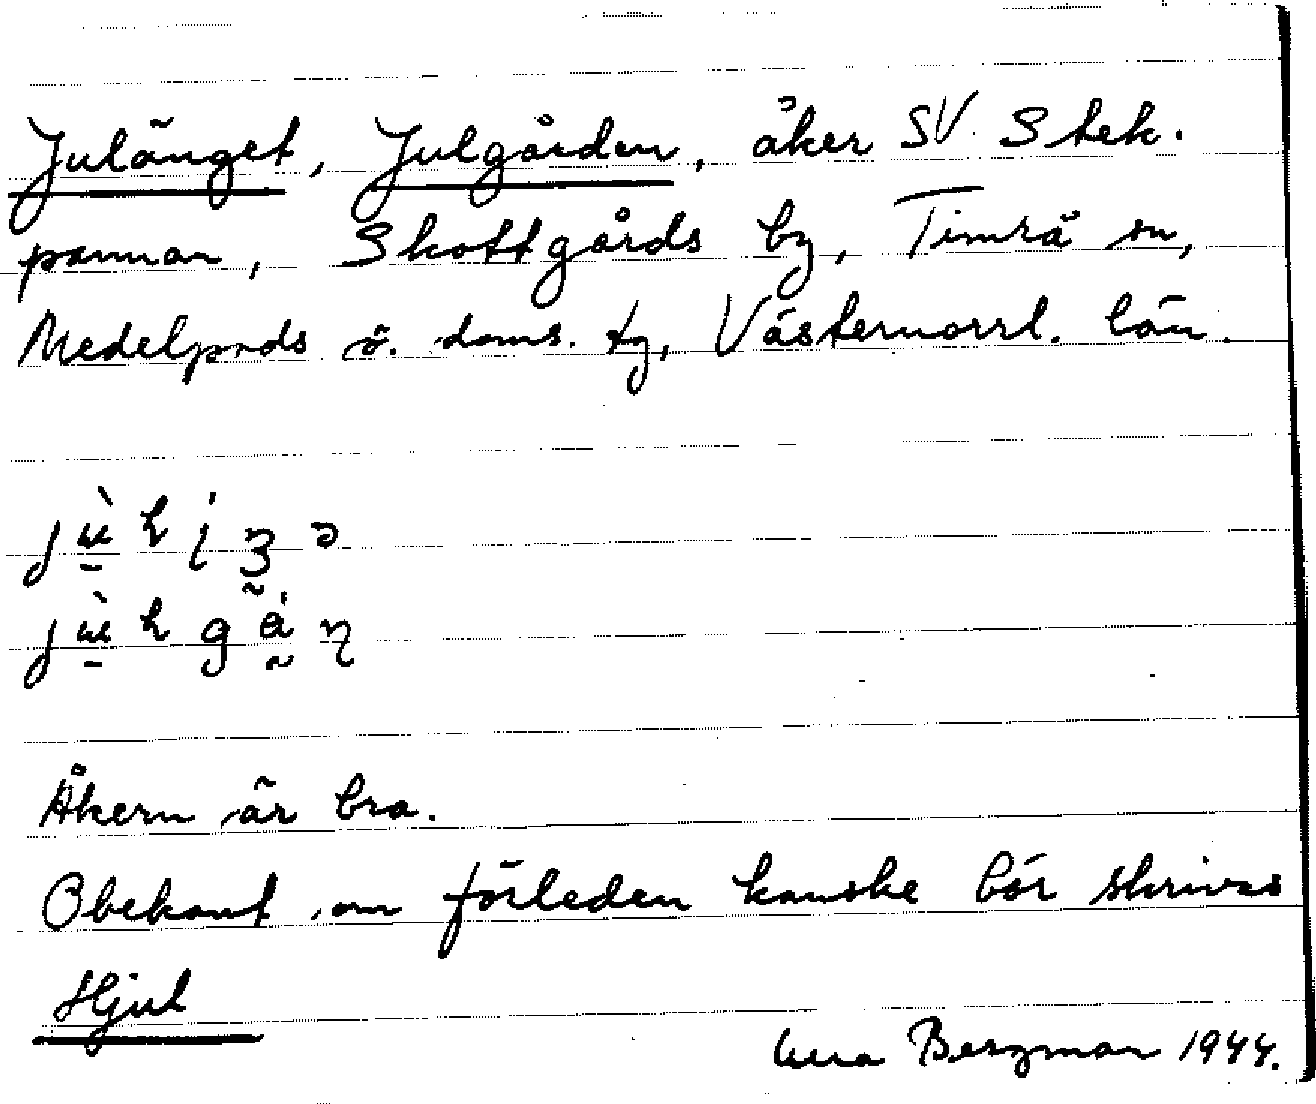 Julänget, Julgården, åker SV. Stek.
pannan, Skottgårds by, Timrå sn,
Medelpads ö. doms. tg, Västernorrl. län.
Åkern är bra.
Obekant om förleden kanske bör skrivas
Hjul
Bergman 1944.